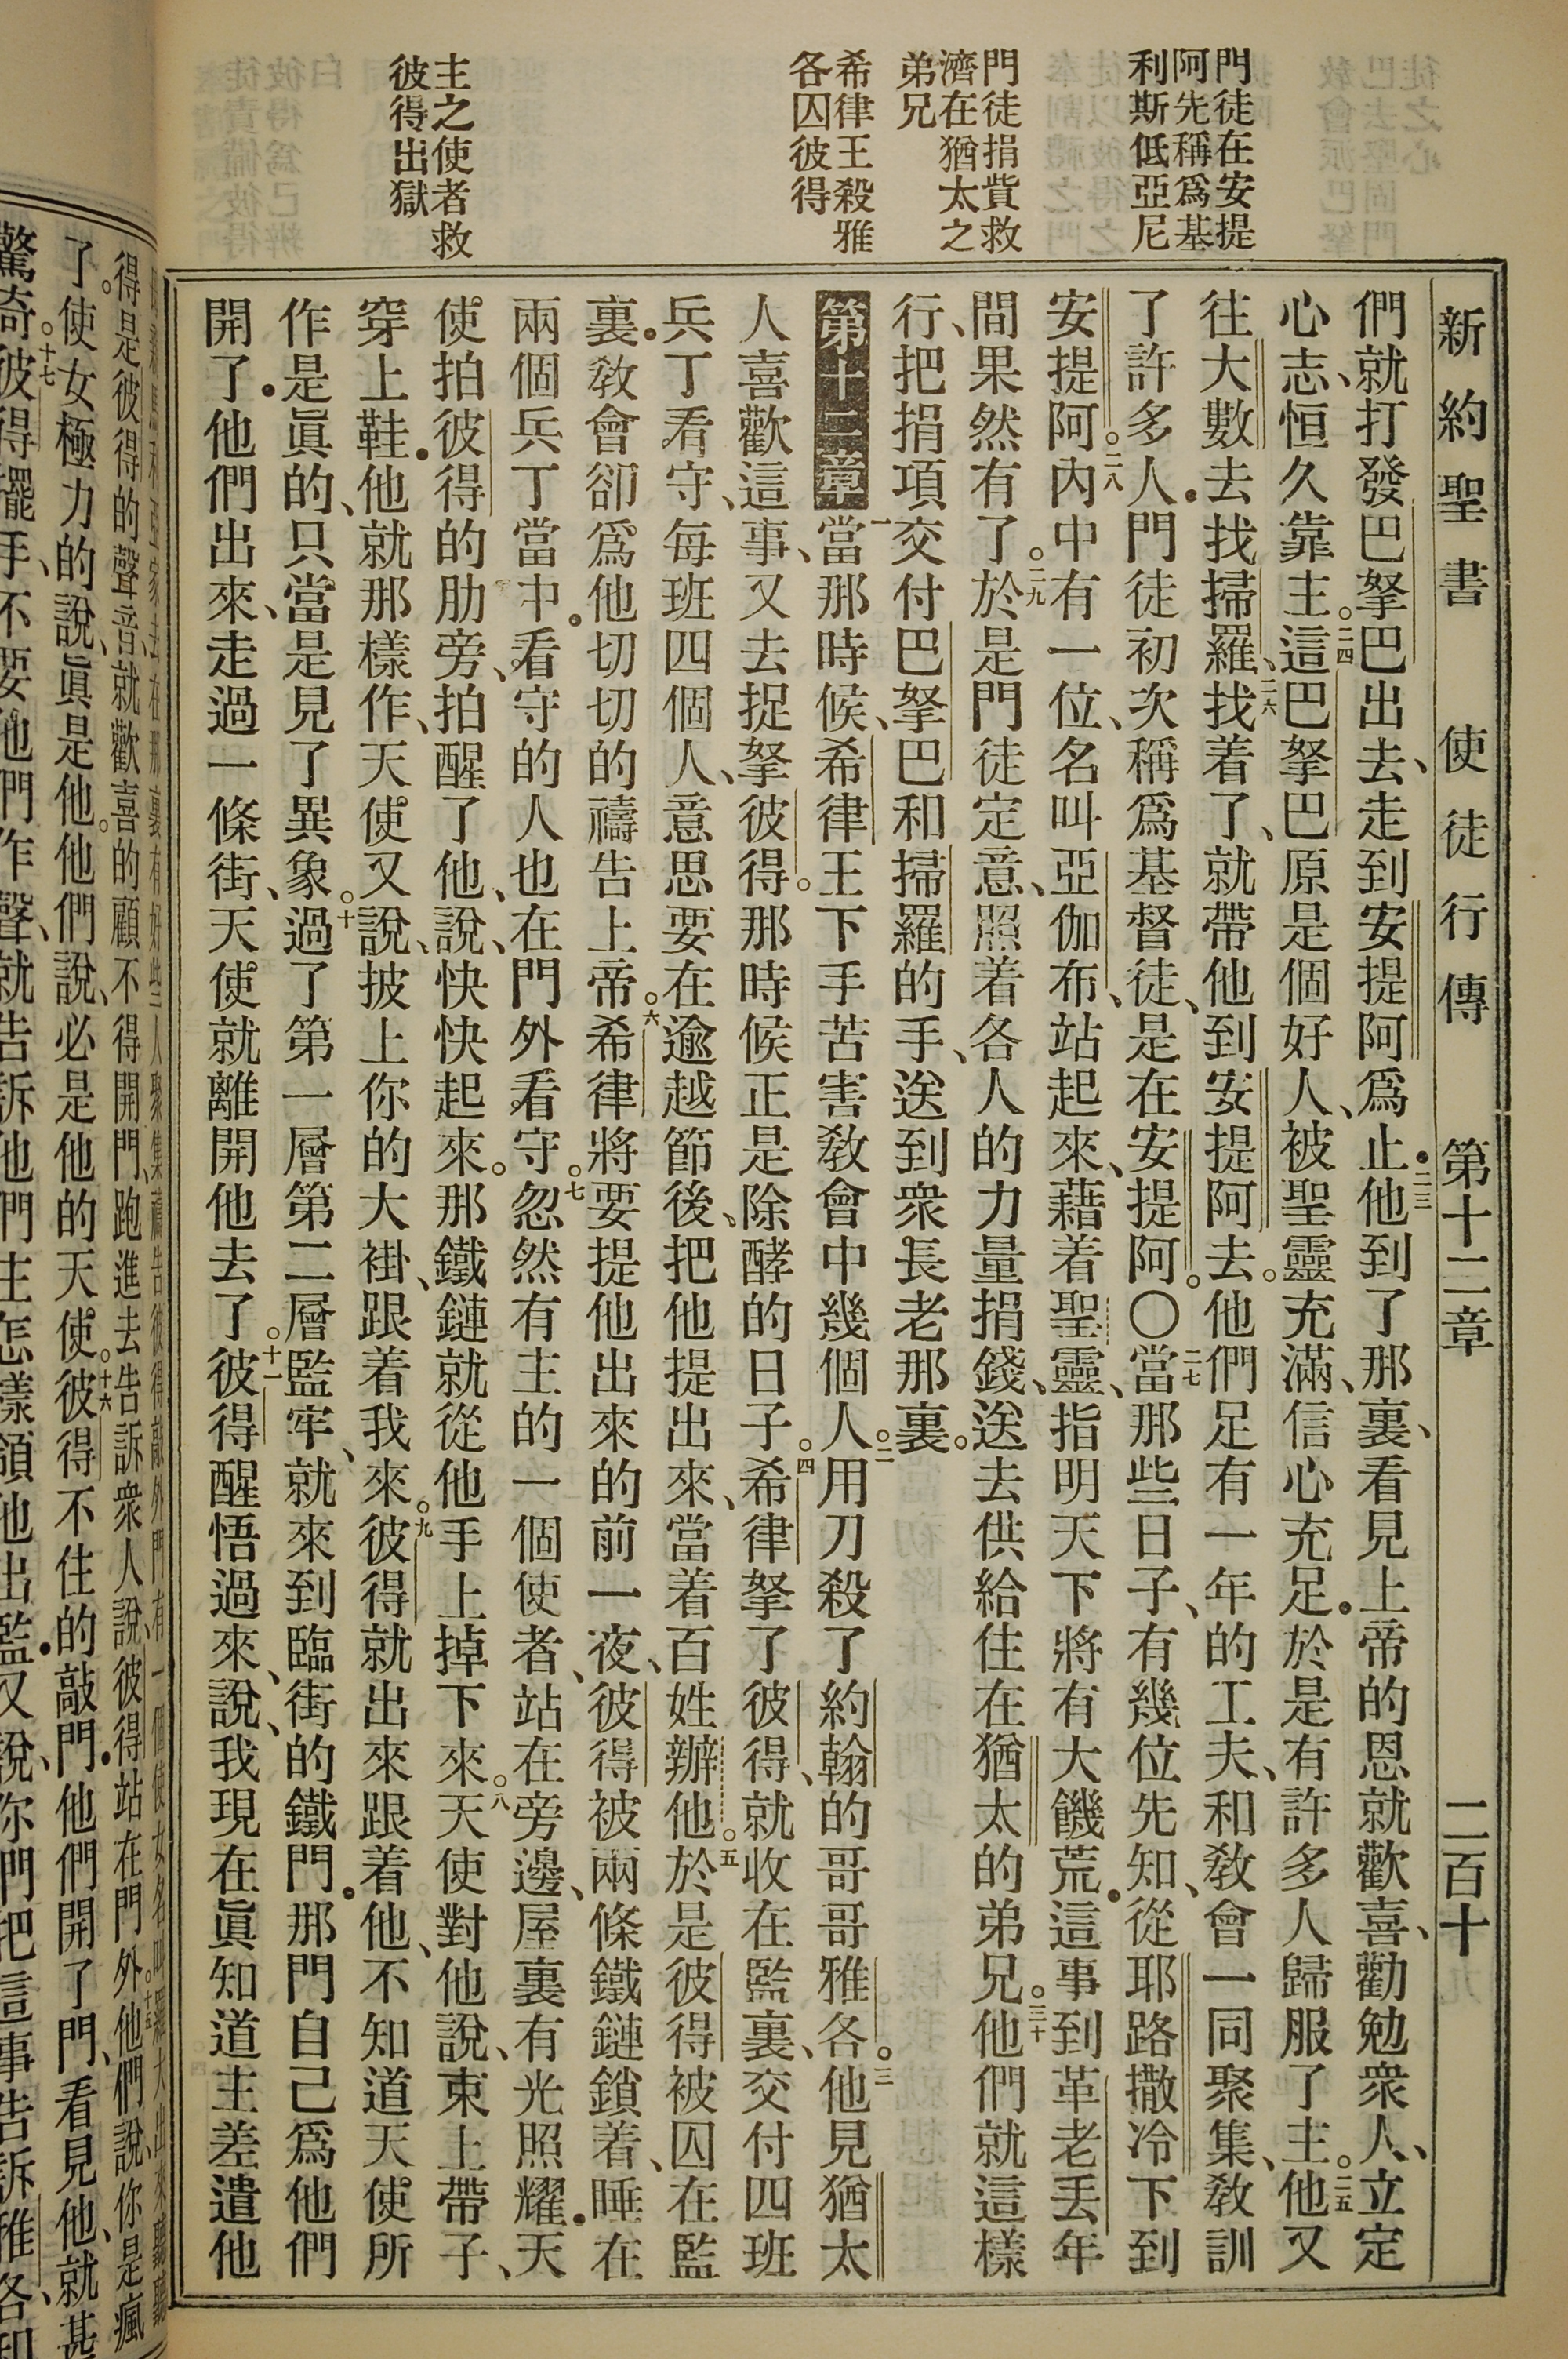 新約聖書 使徒行傳 第十二章 二百十
門徒在安提
阿先稱爲基
利斯低亞尼
門徒捐貲救
濟在猶太之
弟兄
希律王殺雅
各囚彼得
主之使者救
彼得出獄
們就打發巴拏巴出去、走到安提阿爲止.二三他到了那裏、看見上帝的恩就歡喜、勸勉衆人、立定
心志、恒久靠主。二四這巴拏巴原是個好人、被聖靈充滿、信心充足.於是有許多人歸服了主。二五他又
往大數去找掃羅、二六找着了、就帶他到安提阿去。他們足有一年的工夫、和敎會一同聚集、敎訓
了許多人.門徒初次稱爲基督徒、是在安提阿。〇二七當那些日子、有幾位先知、從耶路撒冷下到
安提阿。二八內中有一位、名叫亞伽布、站起來、藉着聖靈、指明天下將有大饑荒.這事到革老丟年
間果然有了。二九於是門徒定意、照着各人的力量捐錢、送去供給住在猶太的弟兄。三十他們就這樣
行、把捐項交付巴拏巴和掃羅的手、送到衆長老那裏。
第十二章 一當那時候、希律王下手苦害敎會中幾個人。二用刀殺了約翰的哥哥雅各。三他見猶太
人喜歡這事、又去捉拏彼得。那時候正是除酵的日子。四希律拏了彼得、就收在監裏、交付四班
兵丁看守、每班四個人、意思要在逾越節後、把他提出來、當着百姓辦他。五於是彼得被囚在監
裏.敎會卻爲他切切的禱告上帝。六希律將要提他出來的前一夜、彼得被兩條鐵鏈鎖着、睡在
兩個兵丁當中.看守的人也在門外看守。七忽然有主的一個使者、站在旁邊、屋裏有光照耀.天
使拍彼得的肋旁、拍醒了他、說、快快起來。那鐵鏈就從他手上掉下來。八天使對他說、束上帶子、
穿上鞋.他就那樣作、天使又說、披上你的大褂、跟着我來。九彼得就出來跟着他、不知道天使所
作是眞的、只當是見了異象。十過了第一層第二層監牢、就來到臨街的鐵門.那門自己爲他們
開了.他們出來、走過一條街、天使就離開他去了。十一彼得醒悟過來、說、我現在眞知道主差遣他
得是彼得的聲音、就歡喜的顧不得開門、跑進去告訴衆人說、彼得站在門外。十五他們說、你是瘋
了。使女極力的說、眞是他。他們說、必是他的天使。十六彼得不住的敲門.他們開了門、看見他、就甚
驚奇。十七彼得擺手、不要他們作聲、就告訴他們主怎樣領他出監.又說、你們把這事告訴雅各和